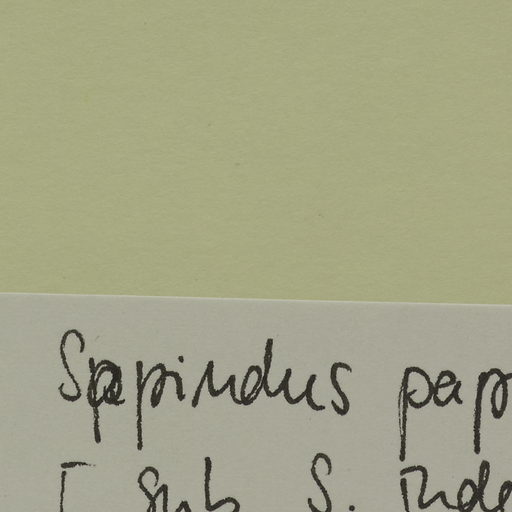 Sapindus pap
[ sub S. inde